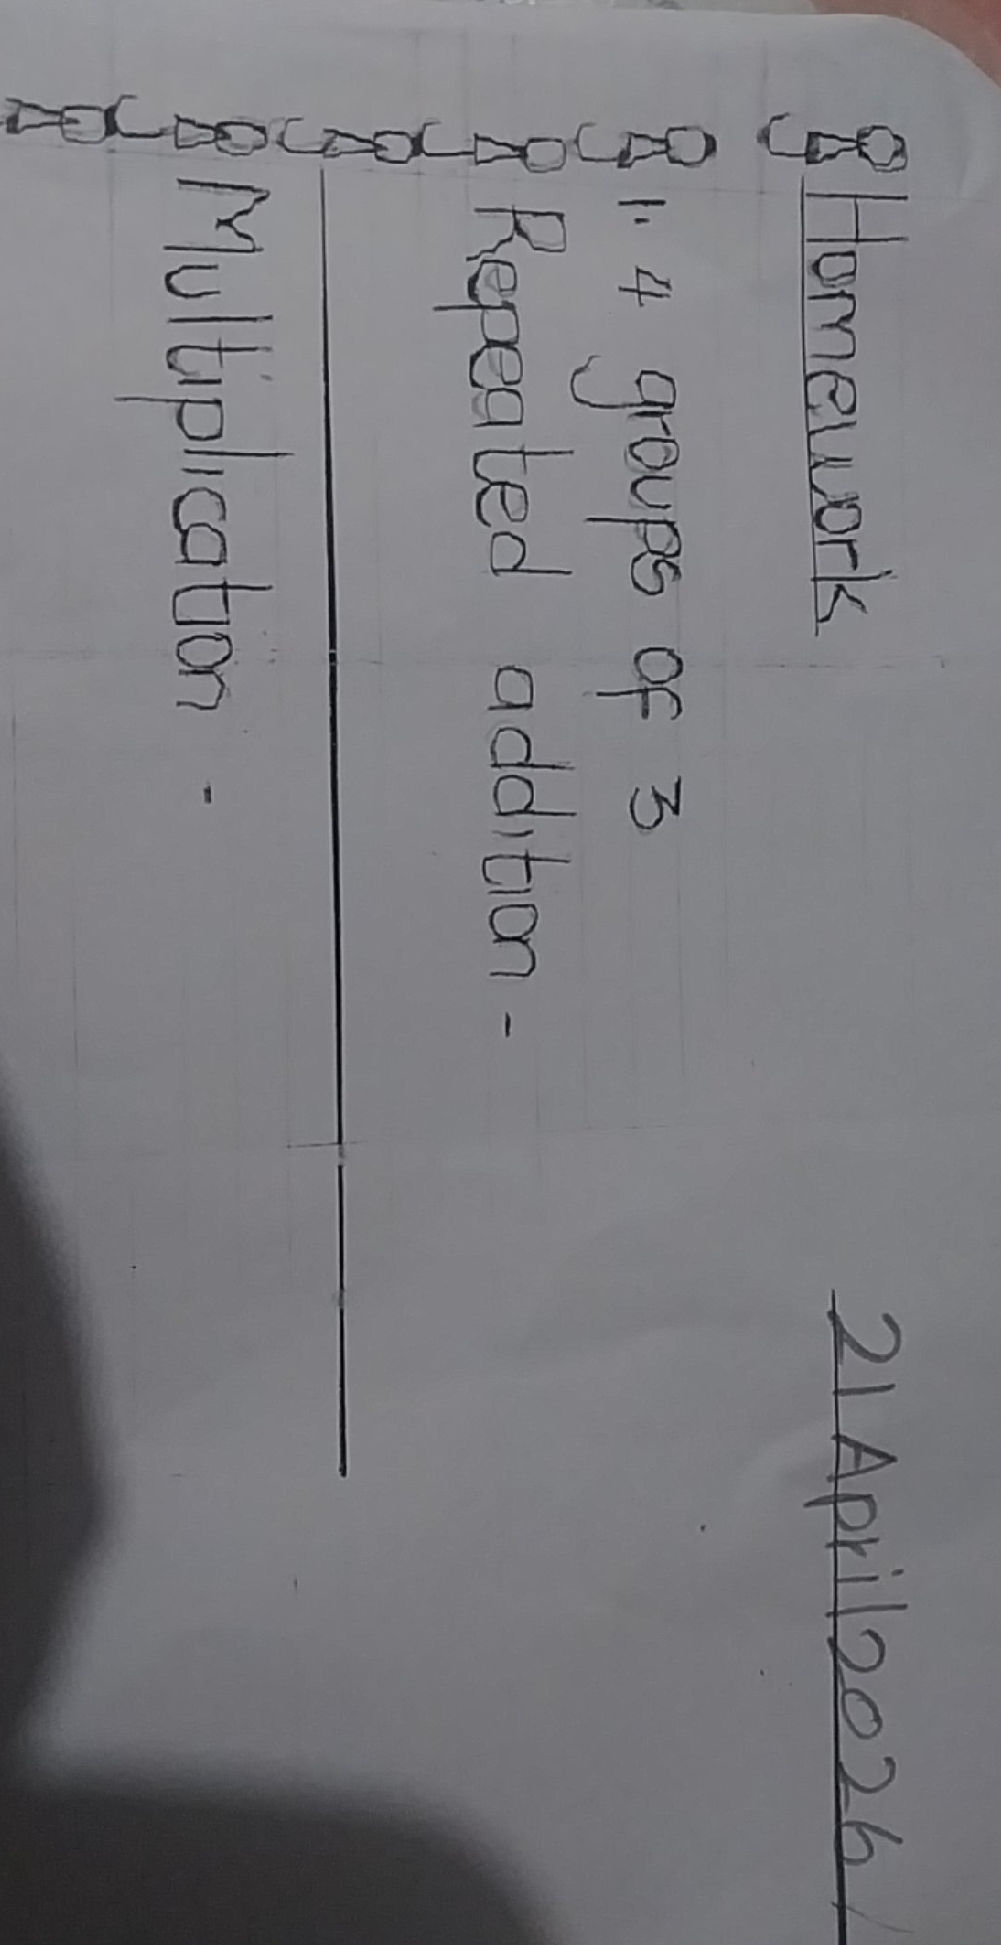 21 April 2026
Homework
1. 4 groups of 3
Repeated addition -
Multiplication -